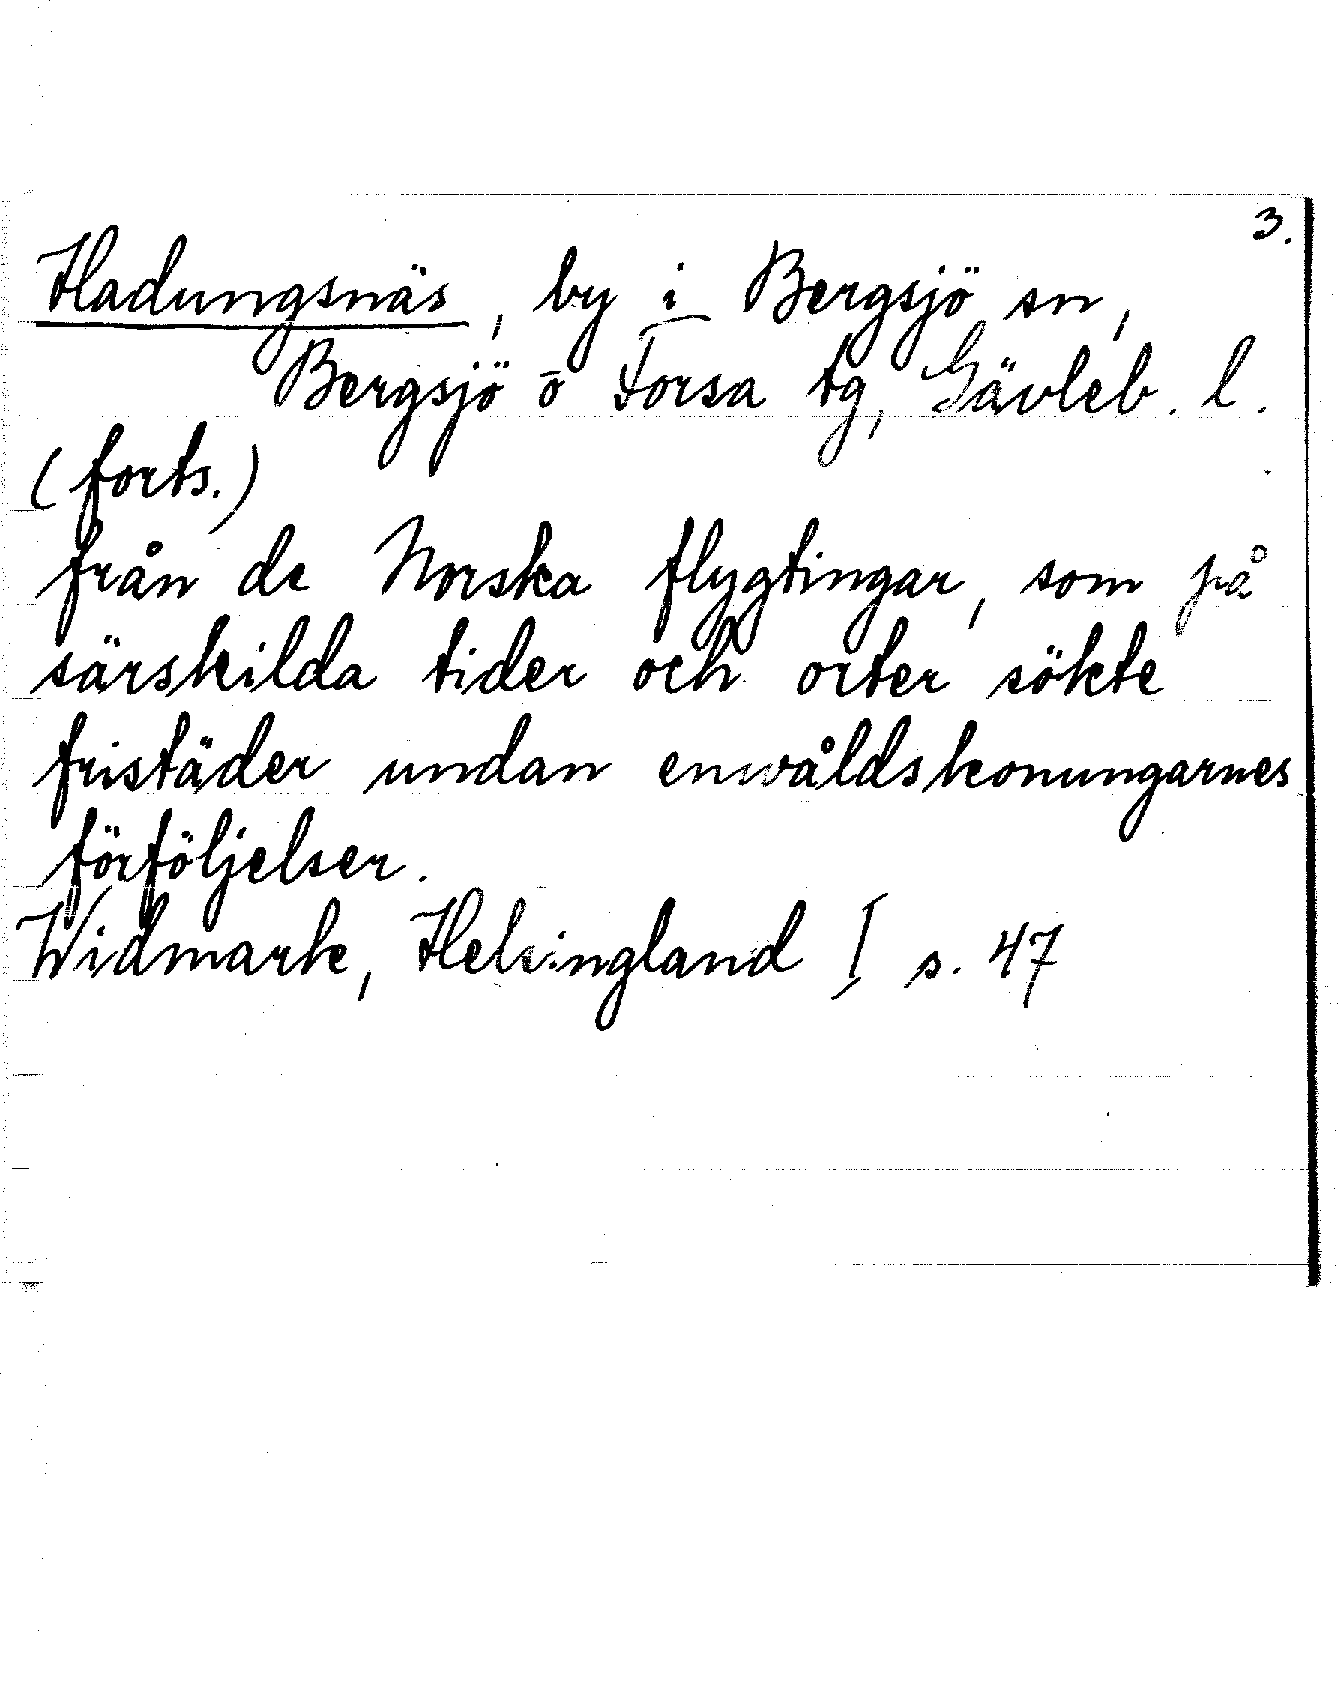 3.
Hadungsnäs, by i Bergsjö sn,
Bergsjö o Forsa tg, Gävleb. l.
(forts.)
från de Norska flygtingar, som på
särskilda tider och orter sökte
fristäder undan enwåldskonungarnes
förföljelser.
Widmark, Helsingland I s. 47